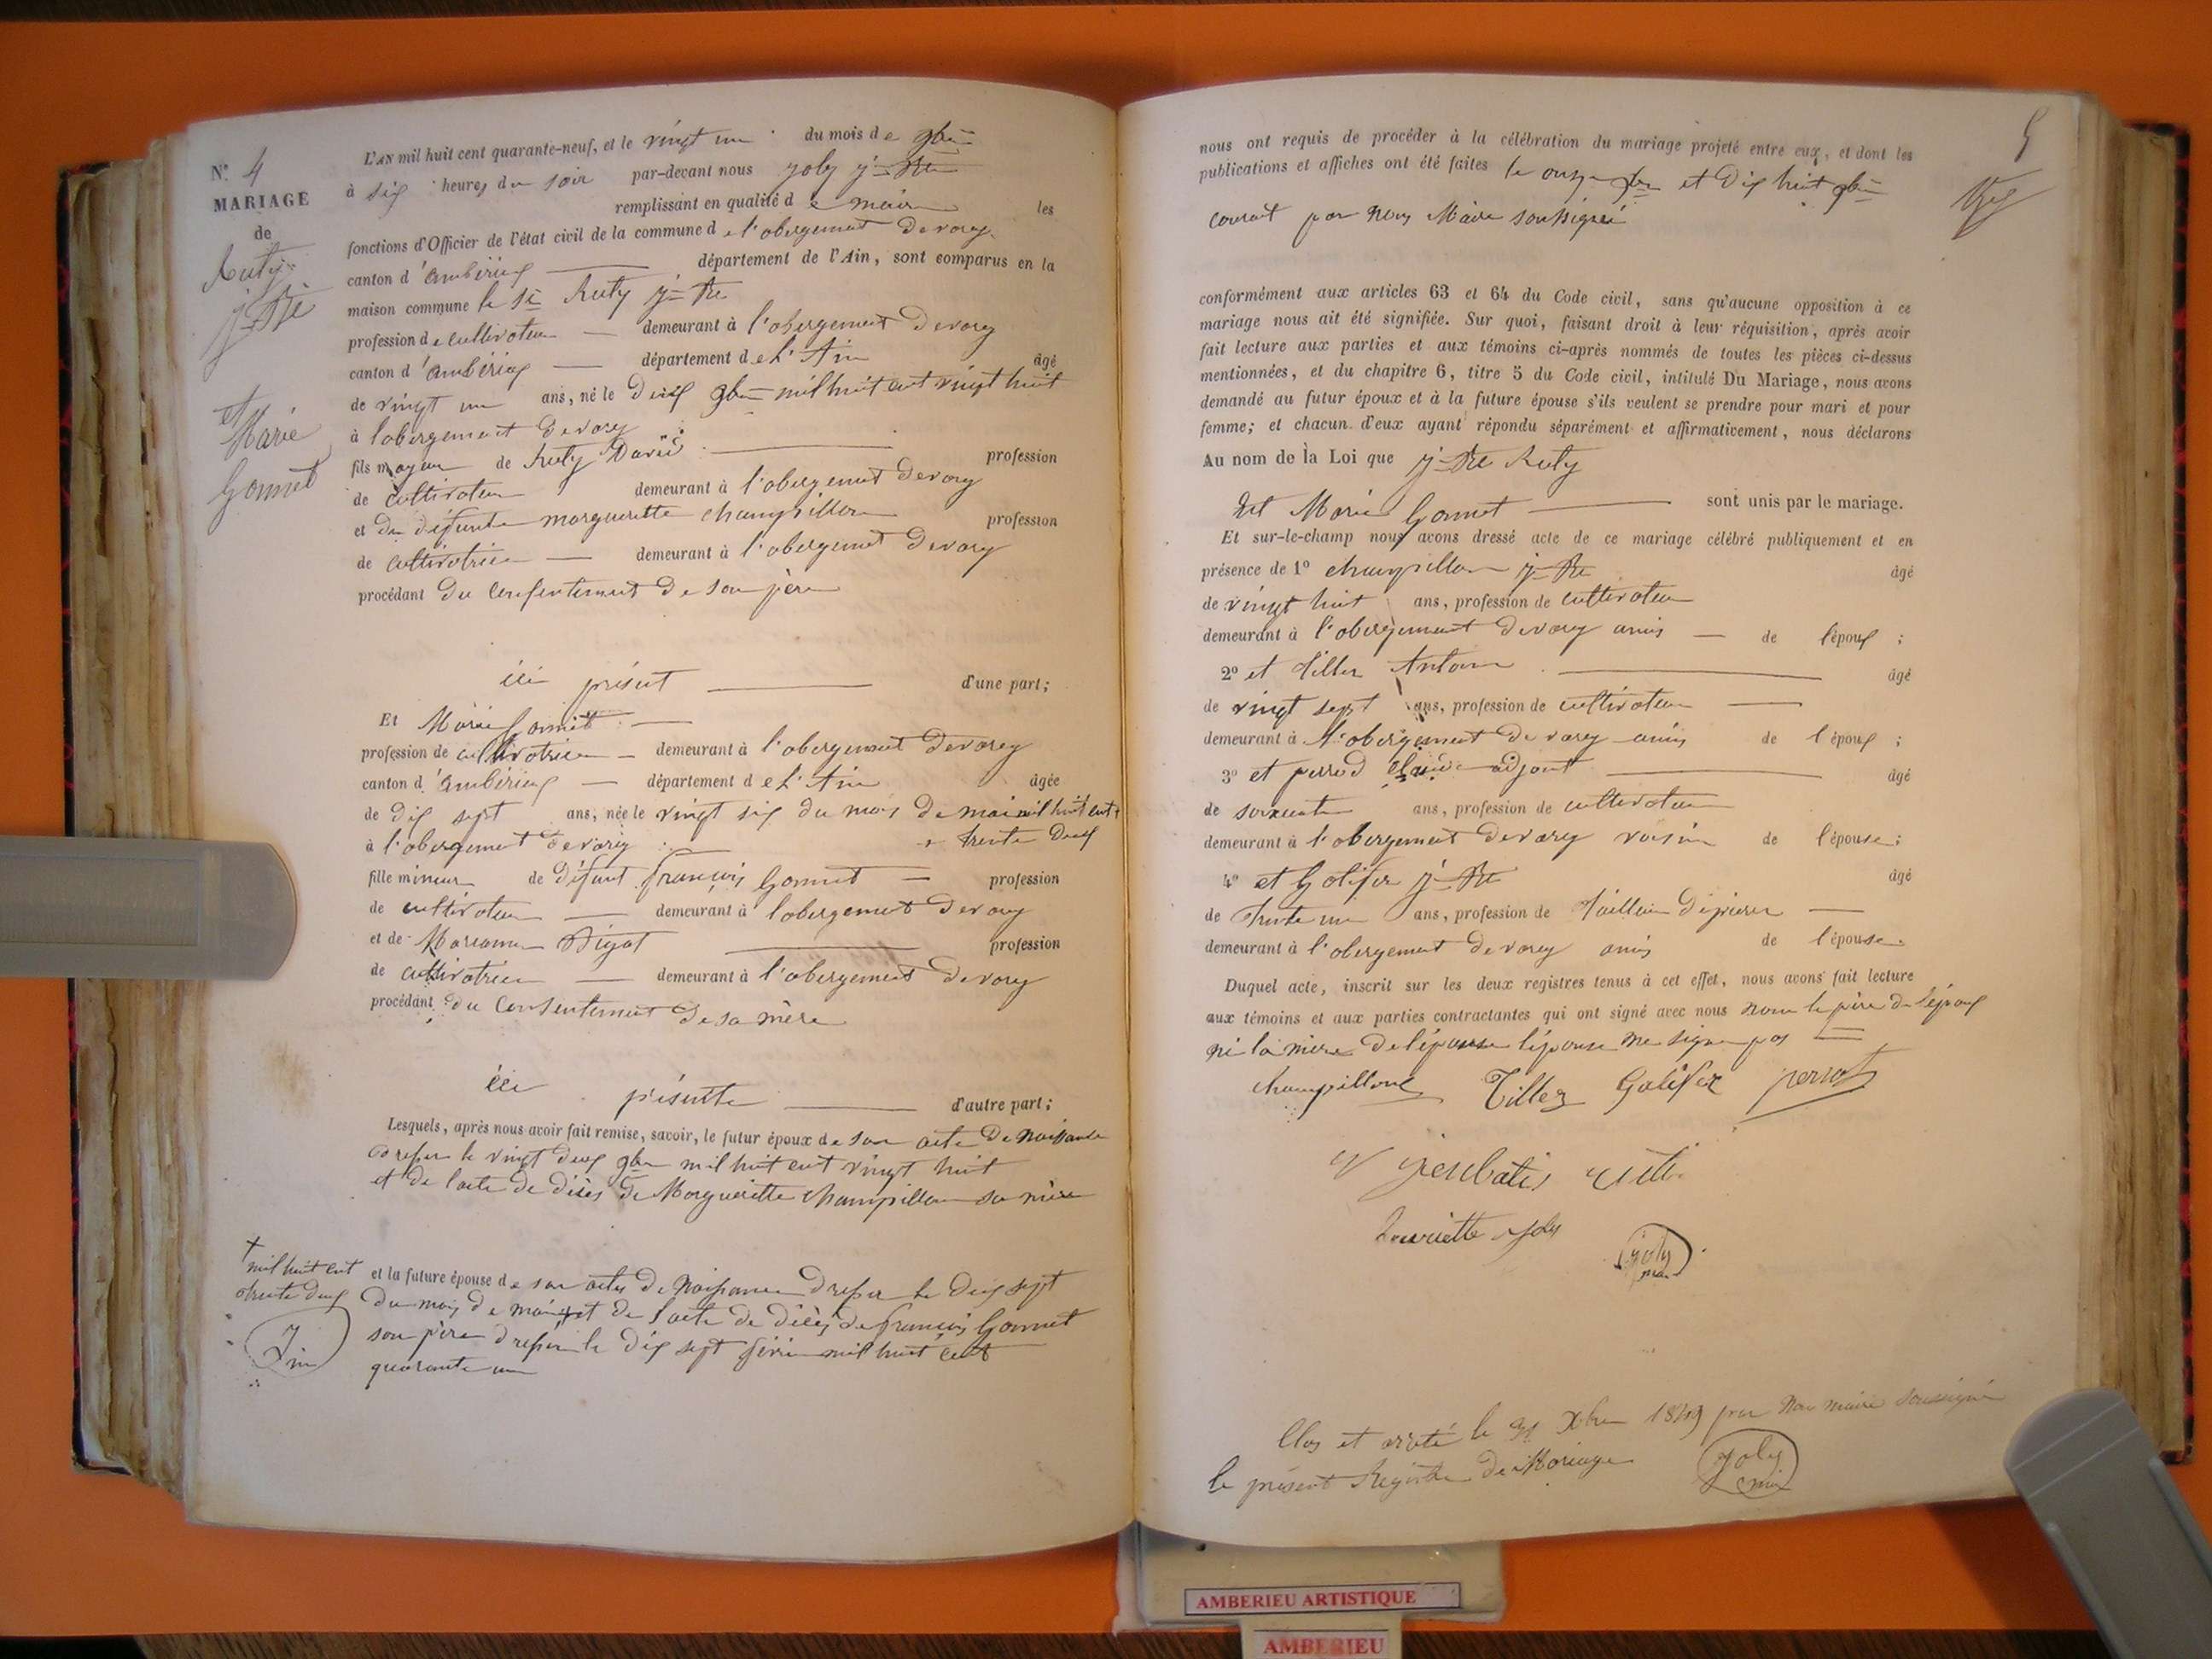 N.° 4
MARIAGE
de
Ruty
j.n Bte
et
Marie
Gonnet
L'AN mil huit cent quarante-neuf, et le vingt un du mois de 9bre
à six heures du soir par-devant nous Joly j.n Bte
remplissant en qualité de maire les
fonctions d'Officier de l'état civil de la commune de l'abergement de varey
canton d'ambérieux département de l'Ain, sont comparus en la
maison commune le sr Ruty j.n Bte
profession de cultivateur demeurant à l'abergement de varey
canton d'ambérieux département de l'Ain âgé
de vingt un ans, né le Deux 9bre mil huit cent vingt huit
à l'abergement de varey
fils majeur de Ruty David profession
de cultivateur demeurant à l'abergement de varey
et de défunte margueritte champillon profession
de cultivatrice demeurant à l'abergement de varey
procédant du consentement de son père
ici présent d'une part;
Et Marie Gonnet
profession de cultivatrice demeurant à l'abergement de varey
canton d'ambérieux département de l'Ain âgée
de dix sept ans, née le vingt six du mois de mai mil huit cent
à l'abergement de varey trente Deux
fille mineure de défunt françois Gonnet profession
de cultivateur demeurant à l'abergement de varey
et de Marianne profession
de cultivatrice demeurant à l'abergement de varey
procédant du consentement de sa mère
ici présente d'autre part;
Lesquels, après nous avoir fait remise, savoir, le futur époux de son acte de naissance
dressé le vingt deux 9bre mil huit cent vingt huit
et de l'acte de décès de Margueritte champillon sa mère
† mil huit cent
trente deux
et la future épouse de son acte de Naissance dressé le dix sept
du mois de mai et de l'acte de décès de françois Gonnet
son père dressé le dix sept février mil huit cent
quarante un
5
nous ont requis de procéder à la célébration du mariage projeté entre eux, et dont les
publications et affiches ont été faites le onze 9bre et Dix huit 9bre
courant par nous Maire soussigné
conformément aux articles 63 et 64 du Code civil, sans qu'aucune opposition à ce
mariage nous ait été signifiée. Sur quoi, faisant droit à leur réquisition, après avoir
fait lecture aux parties et aux témoins ci-après nommés de toutes les pièces ci-dessus
mentionnées, et du chapitre 6, titre 5 du Code civil, intitulé Du Mariage, nous avons
demandé au futur époux et à la future épouse s'ils veulent se prendre pour mari et pour
femme; et chacun d'eux ayant répondu séparément et affirmativement, nous déclarons
Au nom de la Loi que j.n Bte Ruty
Et Marie Gonnet sont unis par le mariage.
Et sur-le-champ nous avons dressé acte de ce mariage célébré publiquement et en
présence de 1° champillon j.n Bte âgé
de vingt huit ans, profession de cultivateur
demeurant à l'abergement de varey amis de l'époux;
2° et Tiller Antoine âgé
de vingt sept ans, profession de cultivateur
demeurant à l'abergement de varey amis de l'époux;
3° et perrod claude adjoint âgé
de soixante ans, profession de cultivateur
demeurant à l'abergement de varey voisin de l'épouse;
4° et Golifer j.n Bte âgé
de trente un ans, profession de Tailleur de pierres
demeurant à l'abergement de varey amis de l'épouse.
Duquel acte, inscrit sur les deux registres tenus à cet effet, nous avons fait lecture
aux témoins et aux parties contractantes qui ont signé avec nous non le père de l'époux
ni la mère de l'épouse l'épouse ne signe pas
champillon Tiller Golifer perrod
jenbatis
henriette joly
Joly
maire
Clos et arreté le 31 Xbre 1849 par Nous maire soussigné
le présent Registre de Mariage
Joly
AMBERIEU ARTISTIQUE
AMBERIEU